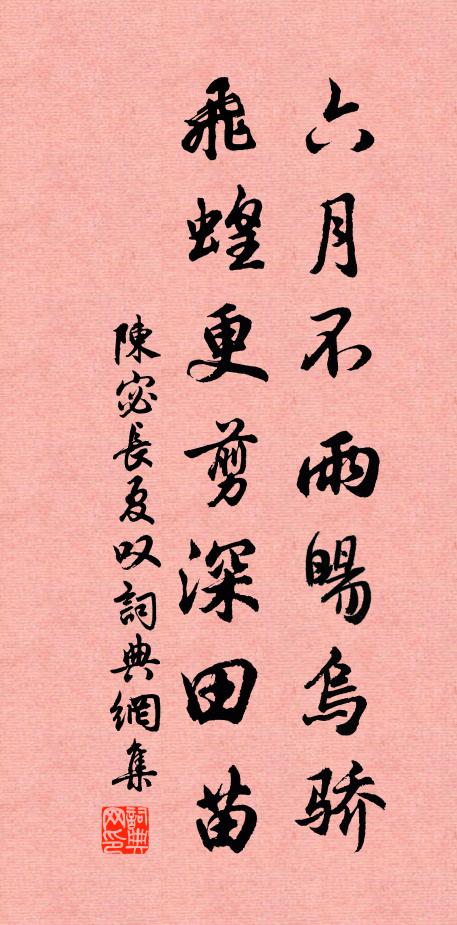 六月不雨賜烏骄
飛蝗更剪深田苗
陳宓長夏叹詞典網集
詞典网印